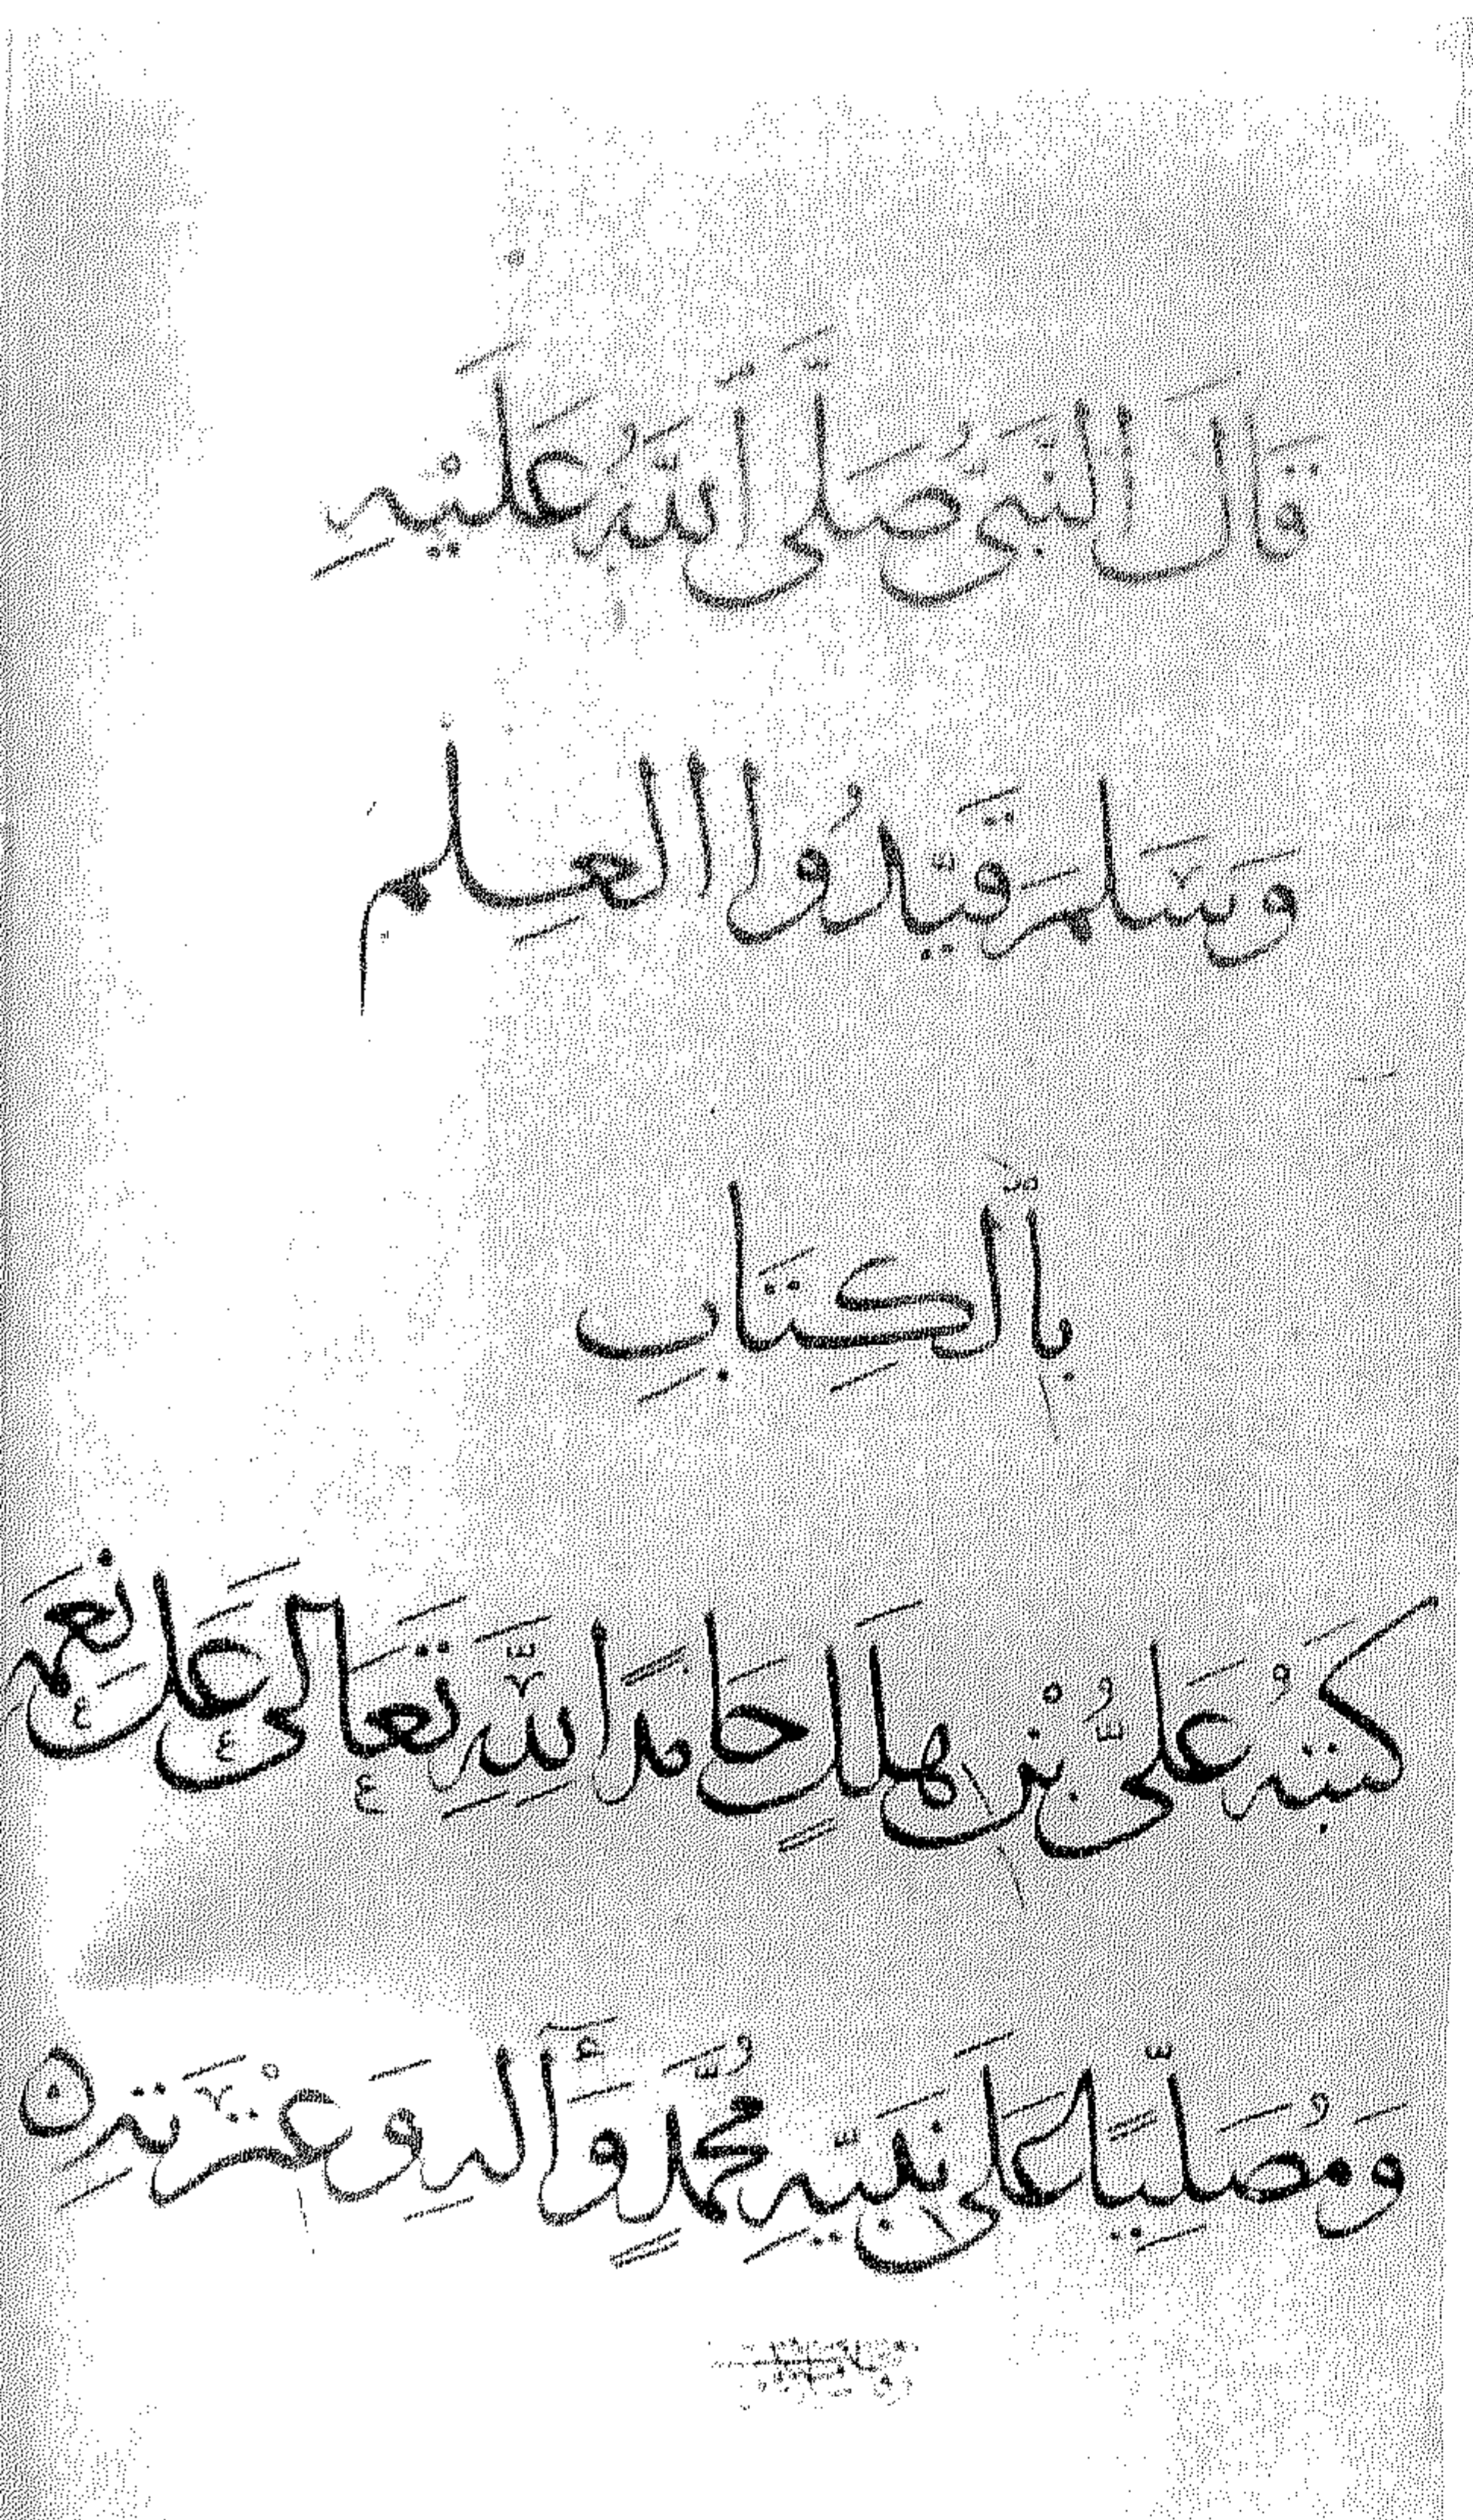 قَالَ النَّبِيُّ صَلَّى اللَّهُ عَلَيْهِ
وَسَلَّمَ قَيِّدُوا الْعِلْمَ
بِالْكِتَابِ
كَتَبَهُ عَلِيُّ بْنُ هِلَالٍ حَامِدًا لِلَّهِ تَعَالَى عَلَى نِعَمِهِ
وَمُصَلِّيًا عَلَى نَبِيِّهِ مُحَمَّدٍ وَآلِهِ وَعِتْرَتِهِ